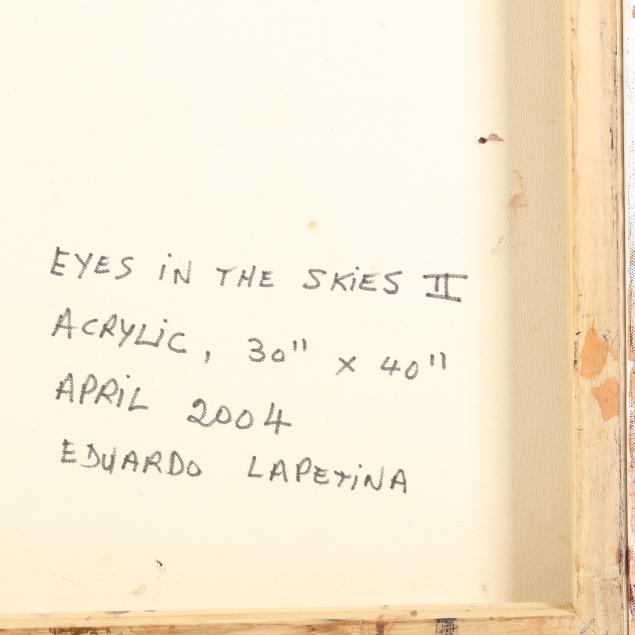 EYES iN THE SKiES II
ACRYLiC, 30" x 40"
APRiL 2004
EDUARDO LAPETiNA